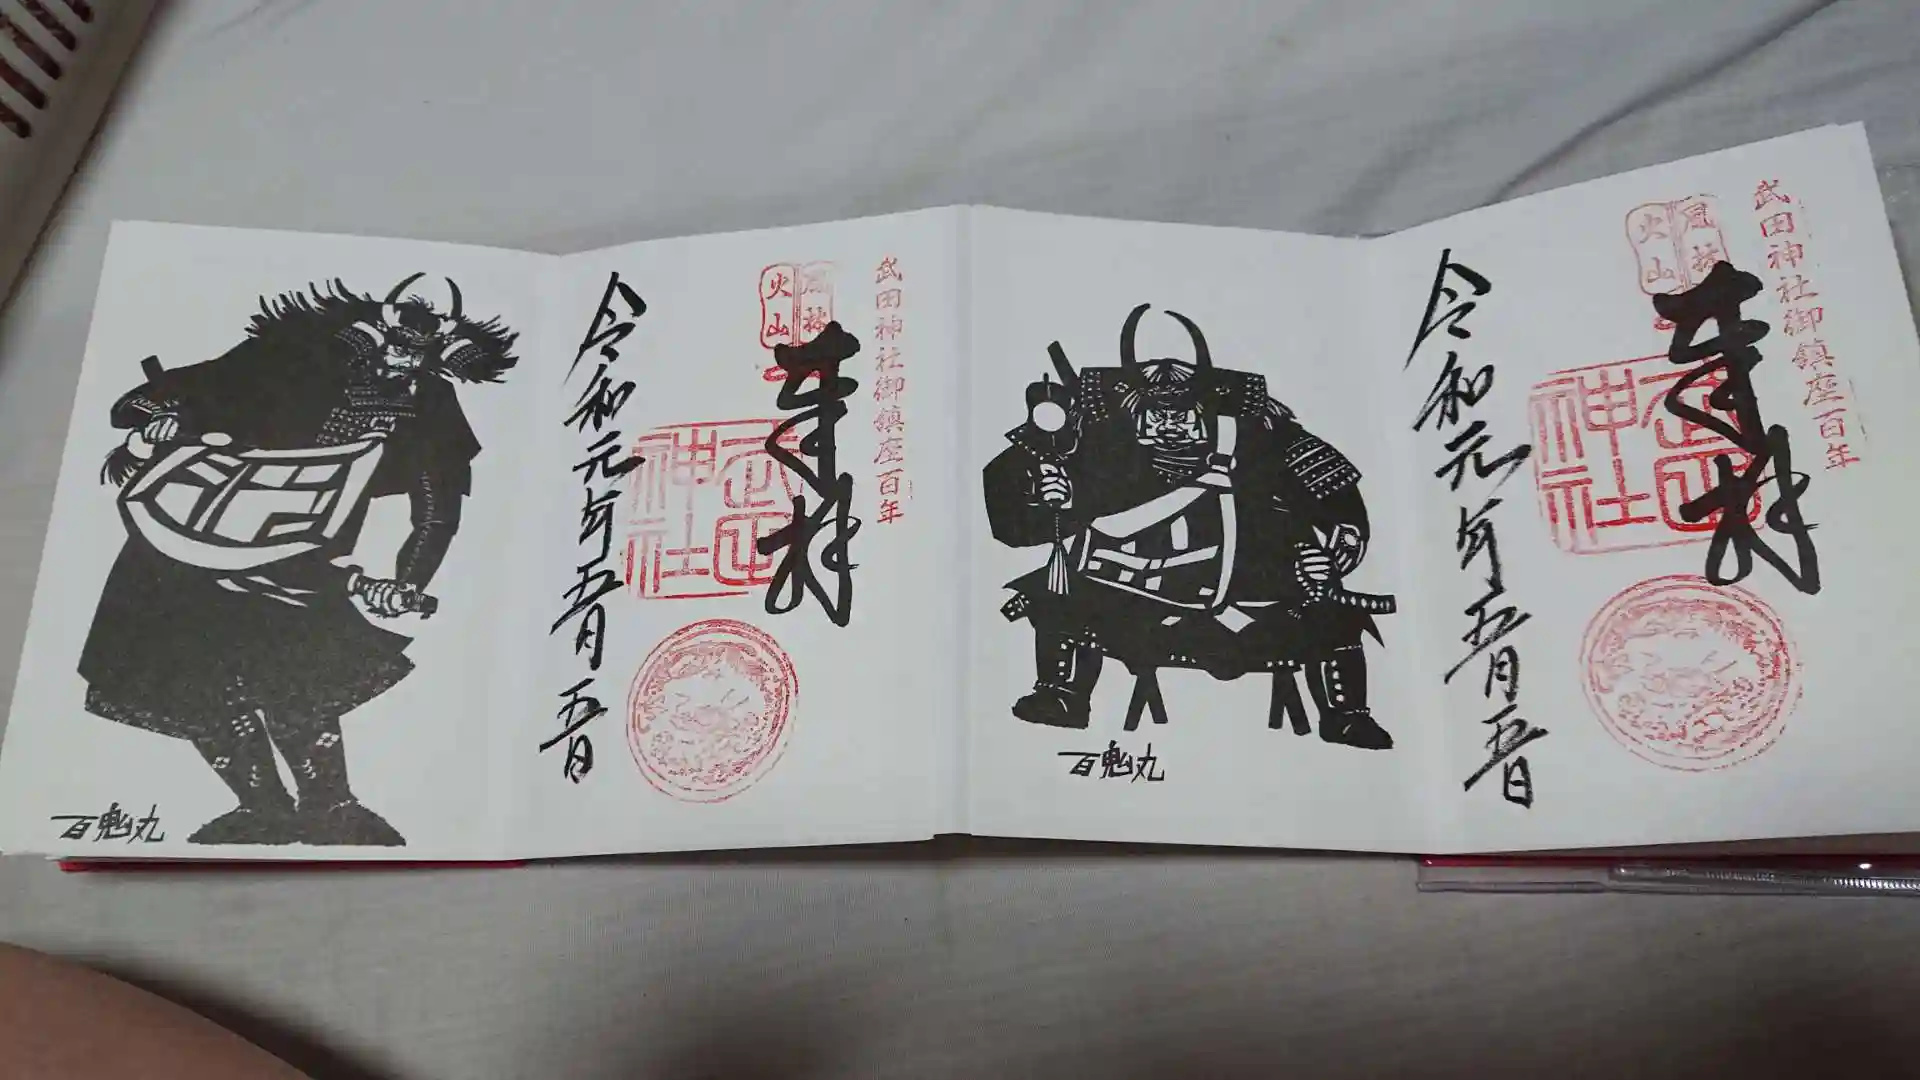 武田神社御鎮座百年
風林
火山
奉拝
武田
神社
令和元年五月五日
百鬼丸
武田神社御鎮座百年
風林
火山
奉拝
武田
神社
令和元年五月五日
百鬼丸